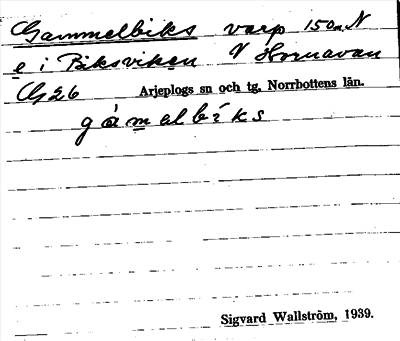 Gammelbiks varp 150 m N
e i Biksviken V Hornavan
G26 Arjeplogs sn och tg, Norrbottens län.
gámelbīks
Sigvard Wallström, 1939.